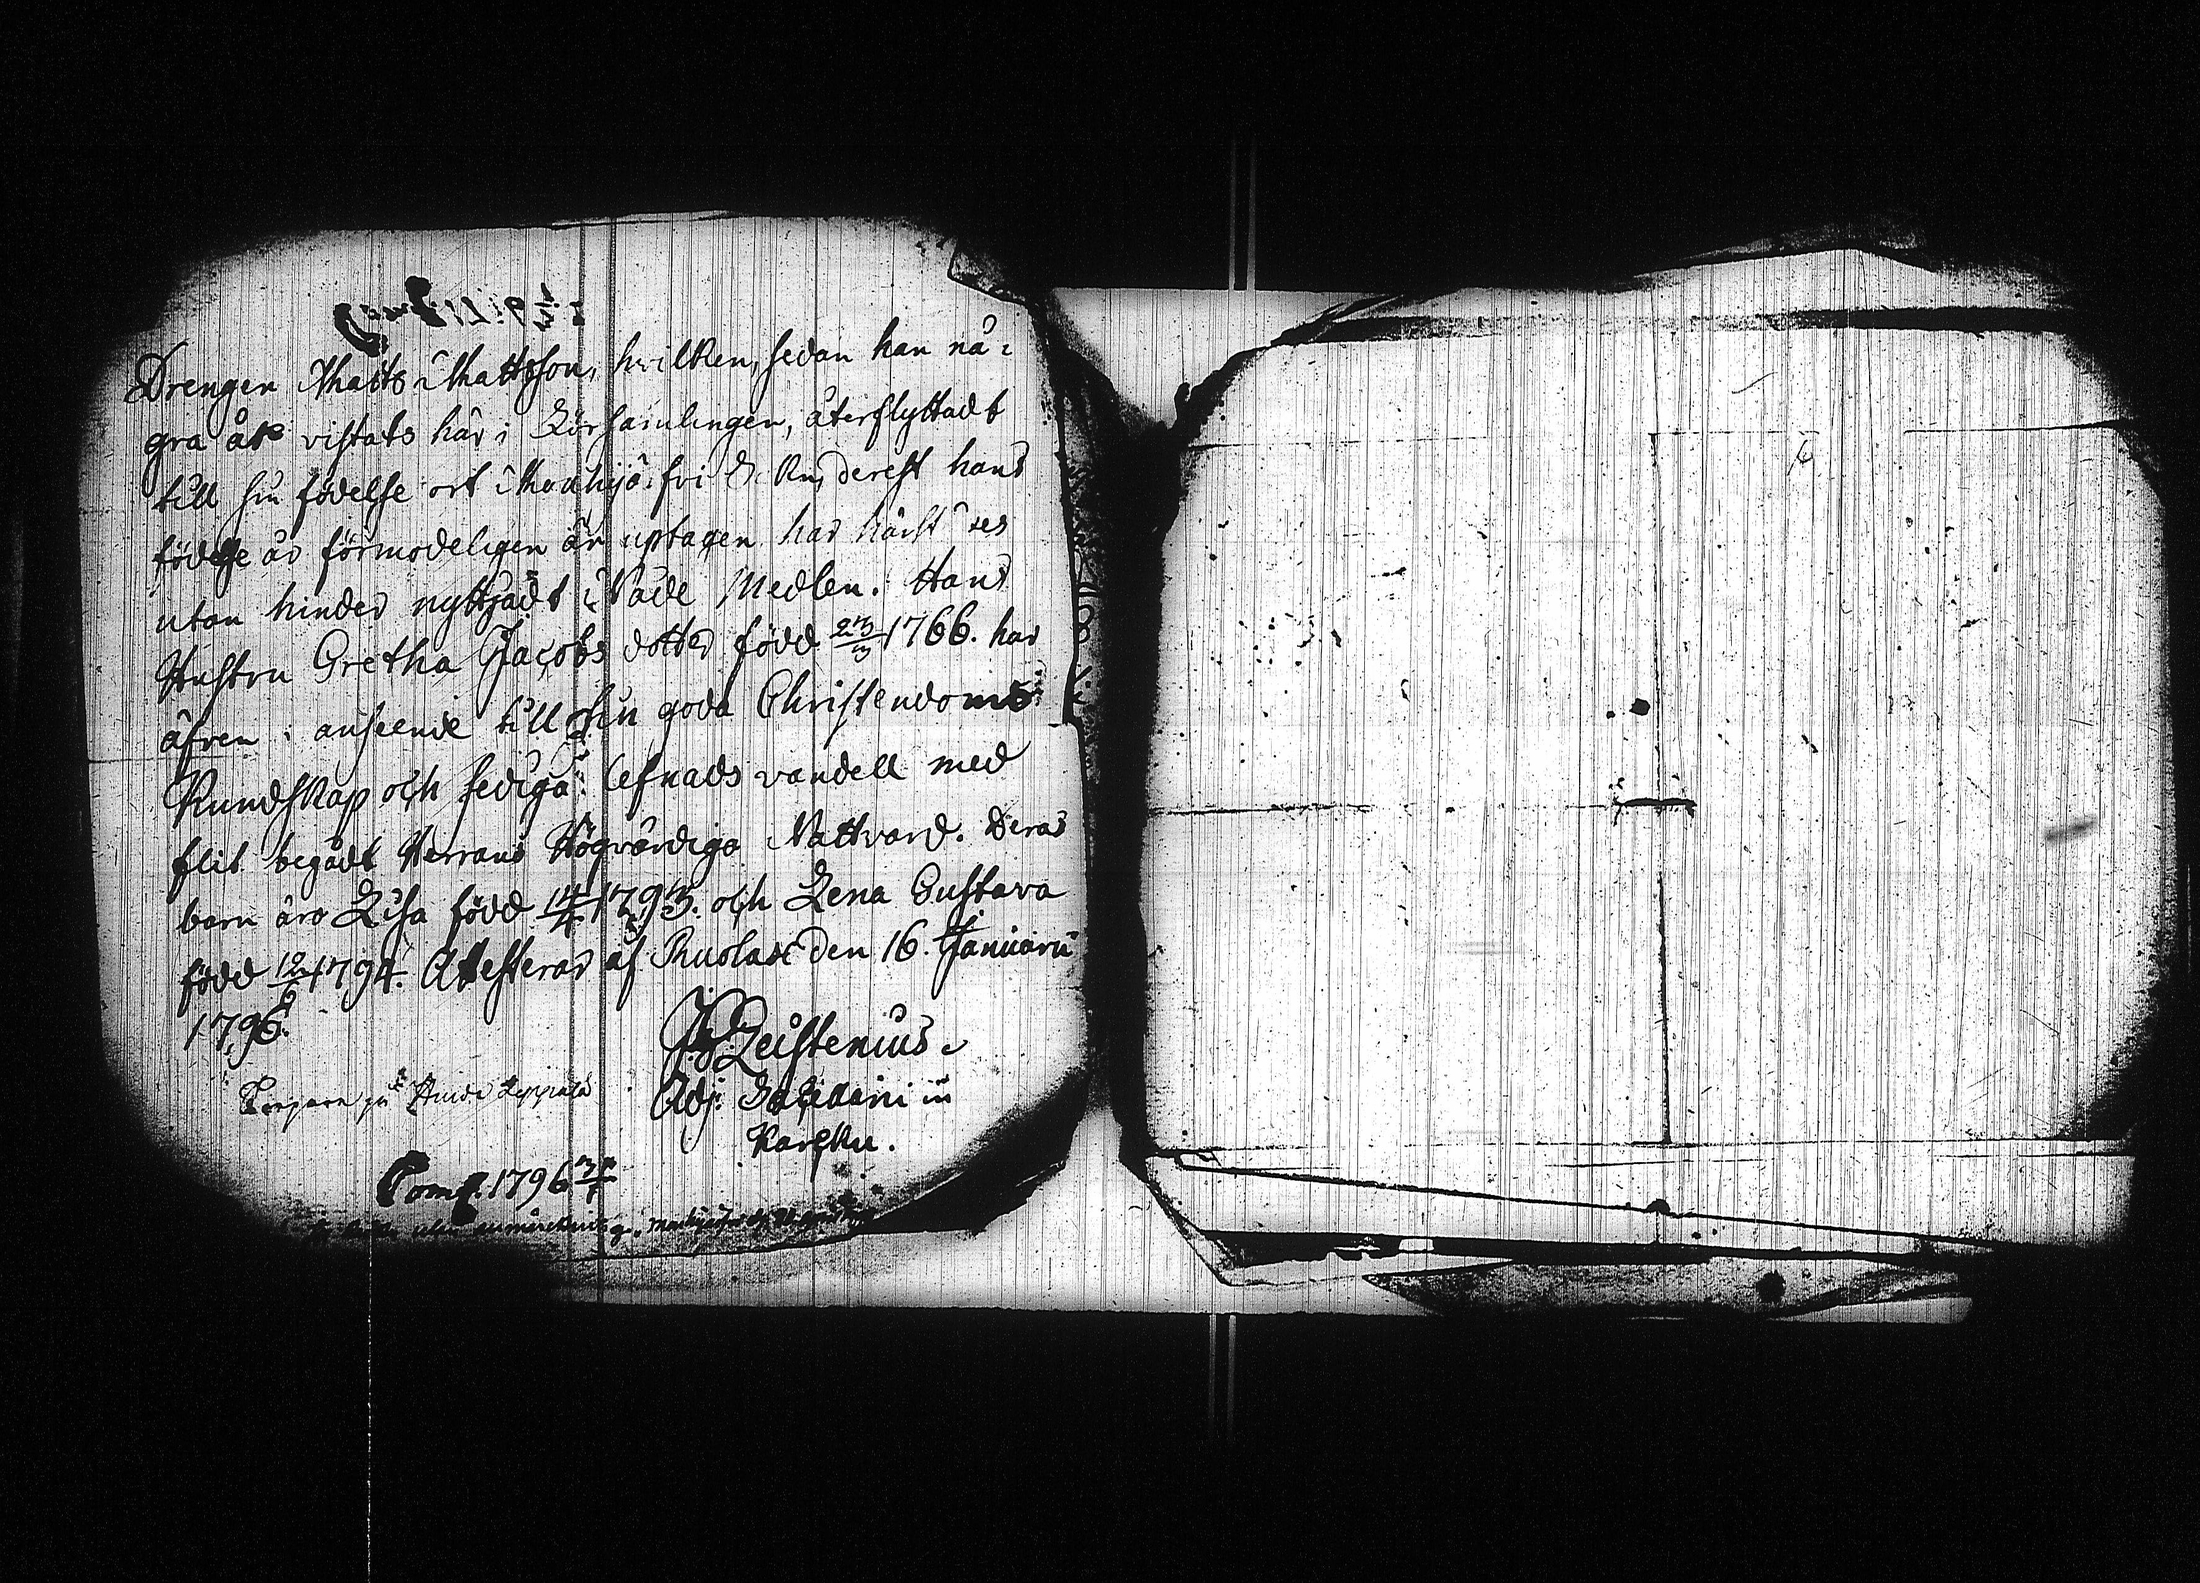 Drengen Matts Mattsson, hvilken, sedan han nå-
gra åhr vistats här i Församlingen, återflyttadt
till sin födelse ort Mouhijärfvi S: Kn, derest hans
födelse år förmodeligen är uptagen har härst
utan hinder nyttjadt Nåde Medlen. Hans
Hustru Gretha Jacobs dotter född 23/3 1766. har
äfven i anseende till sin goda Christendoms
Kundskap och sediga lefnads vandell med
flit begådt Herrans Högvärdiga Nattvard. Deras
barn äro Lisa född 14/4 1793. och Lena Gustava
född 12/6 1794. Attesterar af Ruolax den 16. Januarii
1796.
Leistenius
Adj. Sacellani in
Karkku.
Comp. 1796